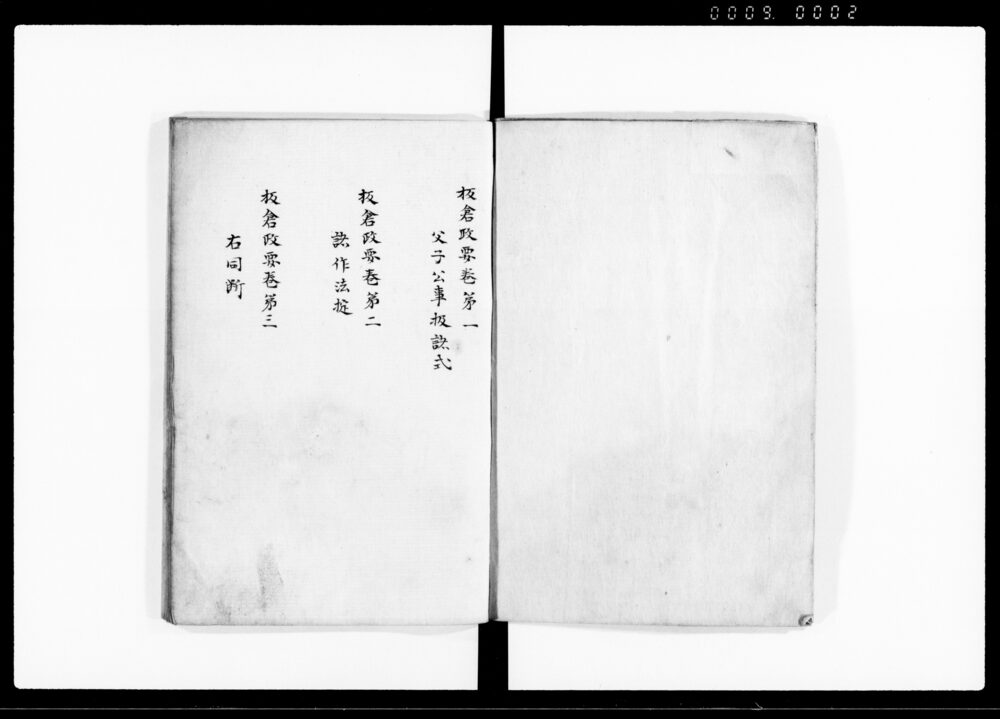 0009. 0002
板倉政要巻第一
父子公事扱諸式
板倉政要巻第二
諸作法掟
板倉政要巻第三
右同断